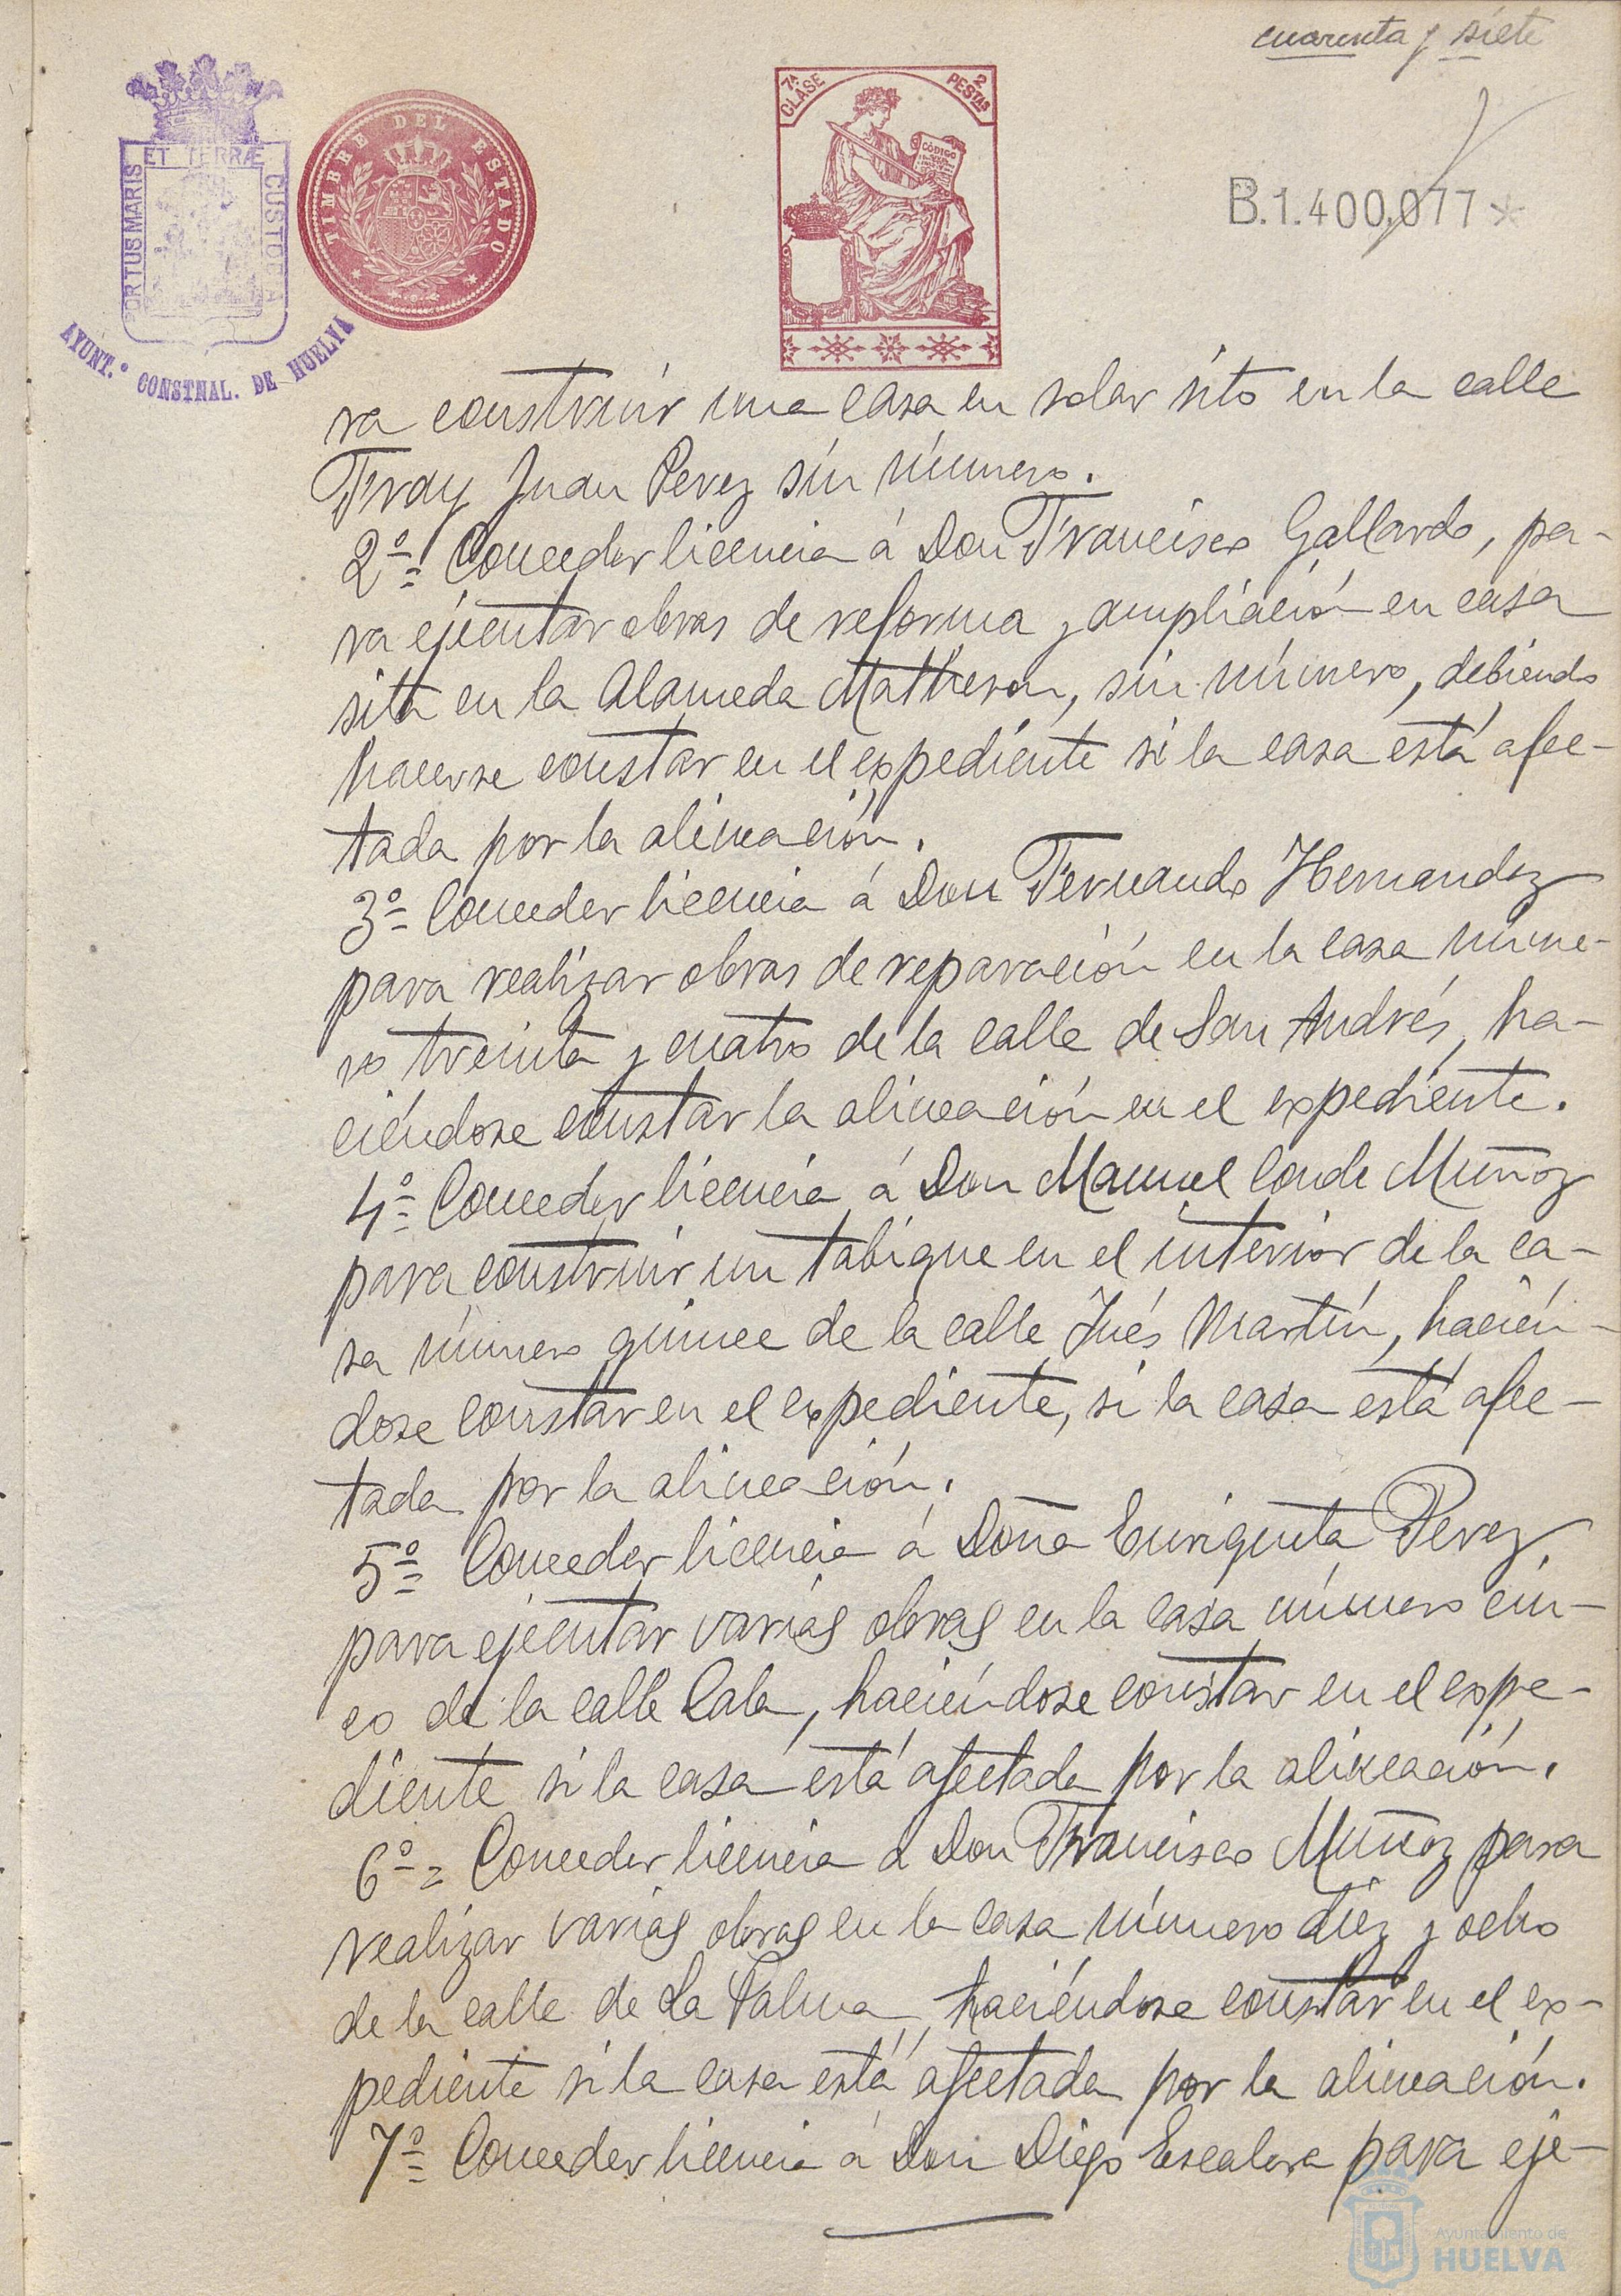 cuarenta y siete
PORTUS MARIS ET TERRÆ CUSTODIA
AYUNT.º CONSTNAL. DE HUELVA
TIMBRE DEL ESTADO
7ª CLASE
2 PESTAS
CÓDIGO
B.1.400,077*
ra construir una casa en solar sito en la calle
Fray Juan Perez sin número.
2º= Conceder licencia á Don Francisco Gallardo, pa-
ra ejecutar obras de reforma y ampliación en casa
sita en la Alameda Matheron, sin número, debiendo
hacerse constar en el expediente si la casa está afec-
tada por la alineación.
3º= Conceder licencia á Don Fernando Hernandez
para realizar obras de reparación en la casa núme-
ro treinta y cuatro de la calle de San Andrés, ha-
ciéndose constar la alineación en el expediente.
4º= Conceder licencia á Don Manuel Conde Muñoz
para construir un tabique en el interior de la ca-
sa número quince de la calle Inés Martín, hacién-
dose constar en el expediente, si la casa está afec-
tada por la alineación.
5º= Conceder licencia á Doña Enriqueta Perez
para ejecutar varias obras en la casa número cin-
co de la calle Cala, haciéndose constar en el expe-
diente si la casa está afectada por la alineación.
6º= Conceder licencia á Don Francisco Muñoz para
realizar varias obras en la casa número diez y ocho
de la calle de La Palma, haciéndose constar en el ex-
pediente si la casa está afectada por la alineación.
7º= Conceder licencia á Don Diego Escalera para eje-
Ayuntamiento de
HUELVA